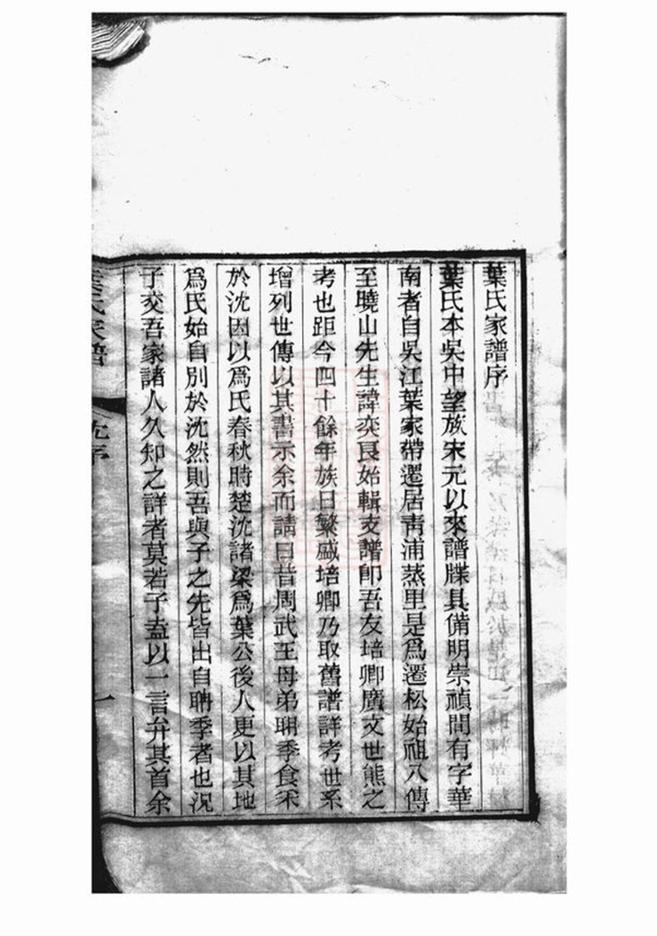 葉氏家譜序
葉氏本吳中望族宋元以來譜牒具備明崇禎間有字華
南者自吳江葉家帶遷居靑浦蒸里是爲遷松始祖八傳
至曉山先生諱奕良始輯支譜卽吾友培卿廣文世熊之
考也距今四十餘年族日繁盛培卿乃取舊譜詳考世系
增列世傳以其書示余而請曰昔周武王母弟聃季食采
於沈因以爲氏春秋時楚沈諸梁爲葉公後人更以其地
爲氏始自別於沈然則吾與子之先皆出自聃季者也況
子交吾家諸人久知之詳者莫若子盍以一言弁其首余
葉氏家譜
沈序
一